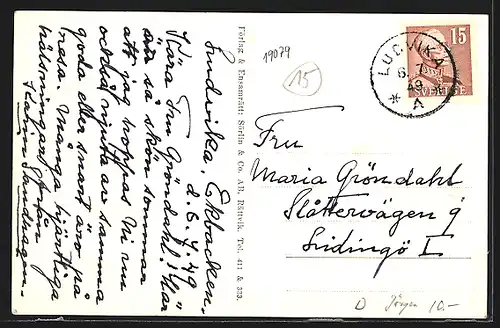 Ludvika, Ekbacken,
d. 6.7.49
Kära Fru Gröndahl! Här
är så skön sommar
att jag hoppas Ni nu
också njuta av samma
goda eller snart äro på
resa. Många hjärtliga
hälsningar från
Förlag & Ensamrätt: Sörlin & Co. AB. Rättvik. Tel. 411 & 333.
19079
15
15
SVERIGE
LUDVIKA
6.7.
49
A
Fru
Maria Gröndahl
Slåttervägen 9
Lidingö I
D 10.-